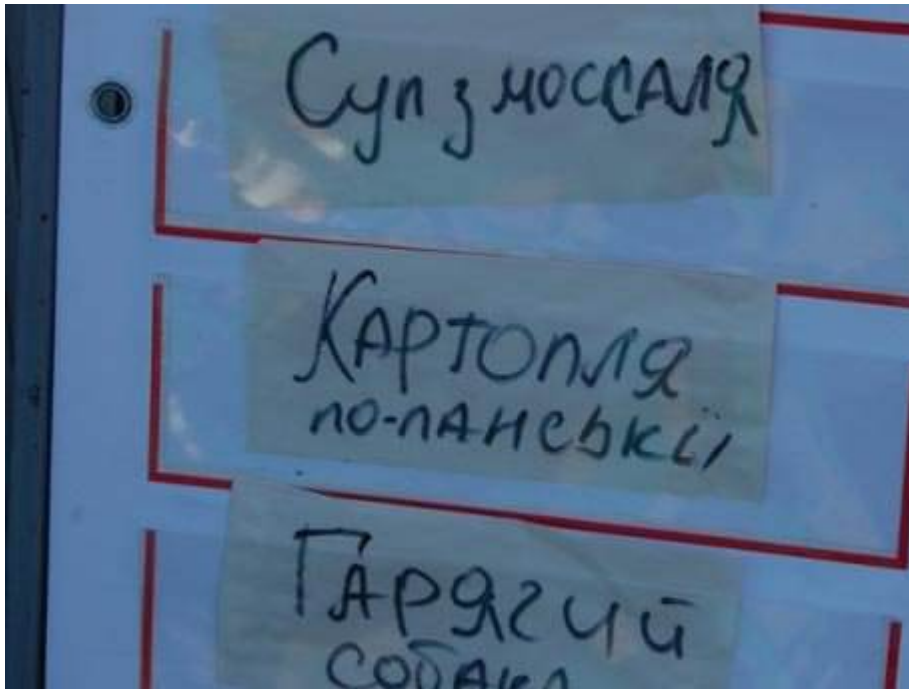 Суп з моссаля
Картопля
по-панські
Гарягчий
собака